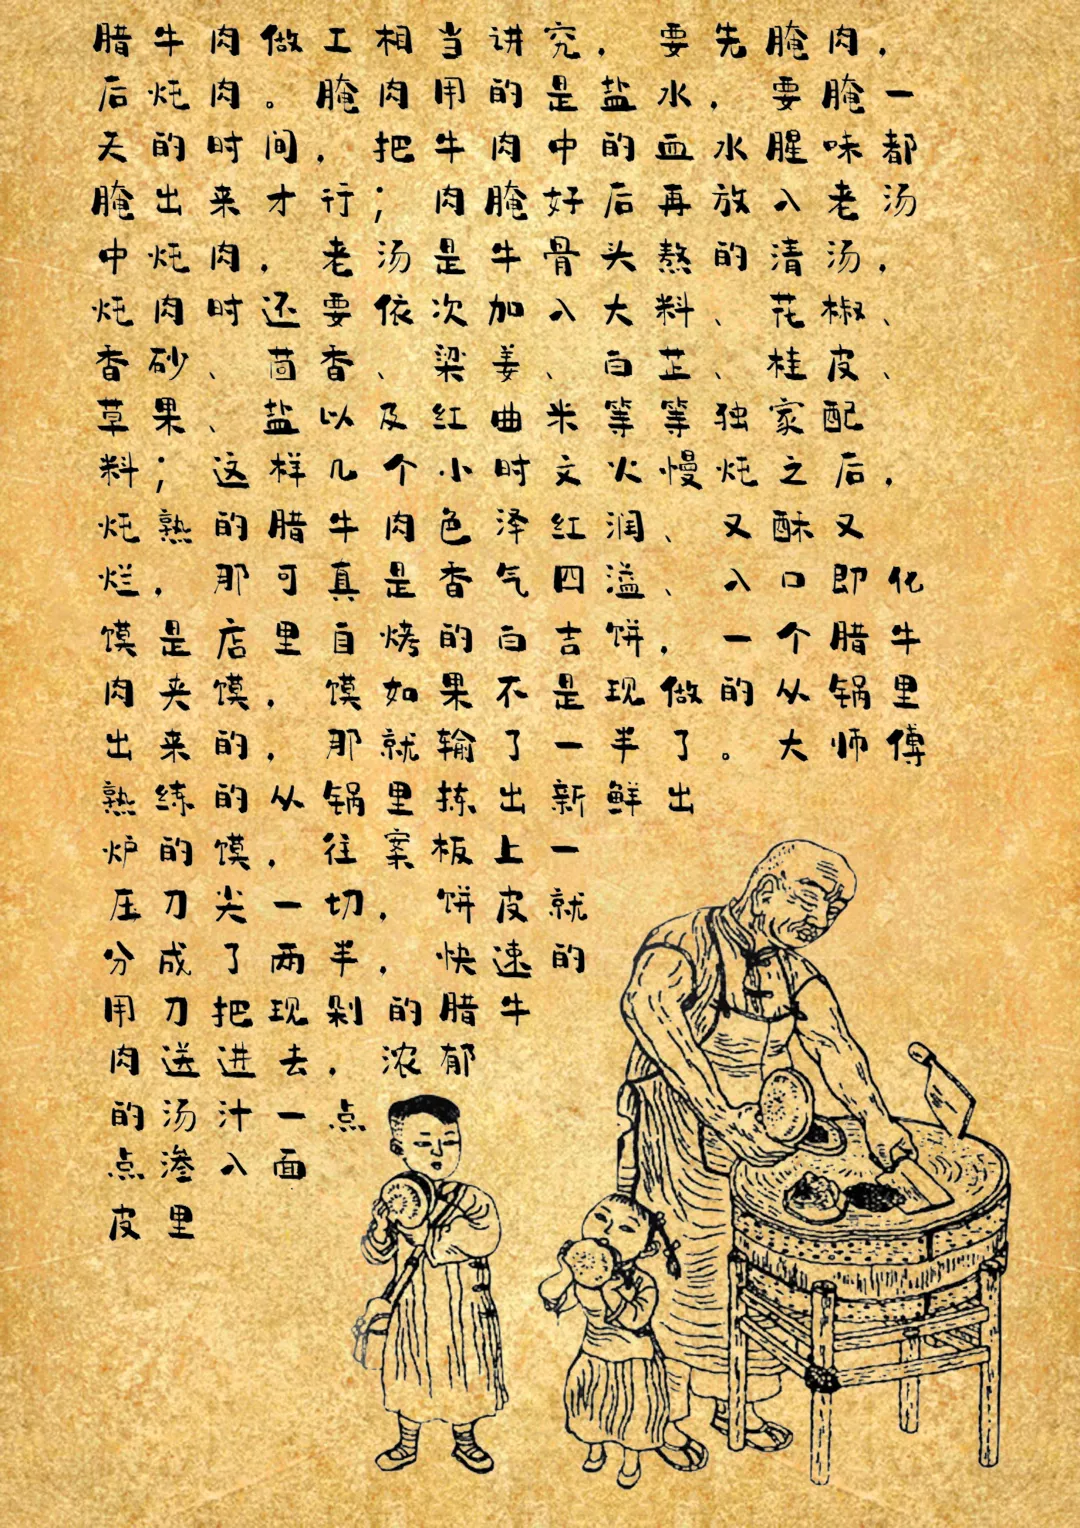 腊牛肉做工相当讲究，要先腌肉，
后炖肉。腌肉用的是盐水，要腌一
天的时间，把牛肉中的血水腥味都
腌出来才行；肉腌好后再放入老汤
中炖肉，老汤是牛骨头熬的清汤，
炖肉时还要依次加入大料、花椒、
香砂、茴香、梁姜、白芷、桂皮、
草果、盐以及红曲米等等独家配
料；这样几个小时文火慢炖之后，
炖熟的腊牛肉色泽红润、又酥又
烂，那可真是香气四溢、入口即化
馍是店里自烤的白吉饼，一个腊牛
肉夹馍，馍如果不是现做的从锅里
出来的，那就输了一半了。大师傅
熟练的从锅里拣出新鲜出
炉的馍，往案板上一
压刀尖一切，饼皮就
分成了两半，快速的
用刀把现剁的腊牛
肉送进去，浓郁
的汤汁一点
点渗入面
皮里